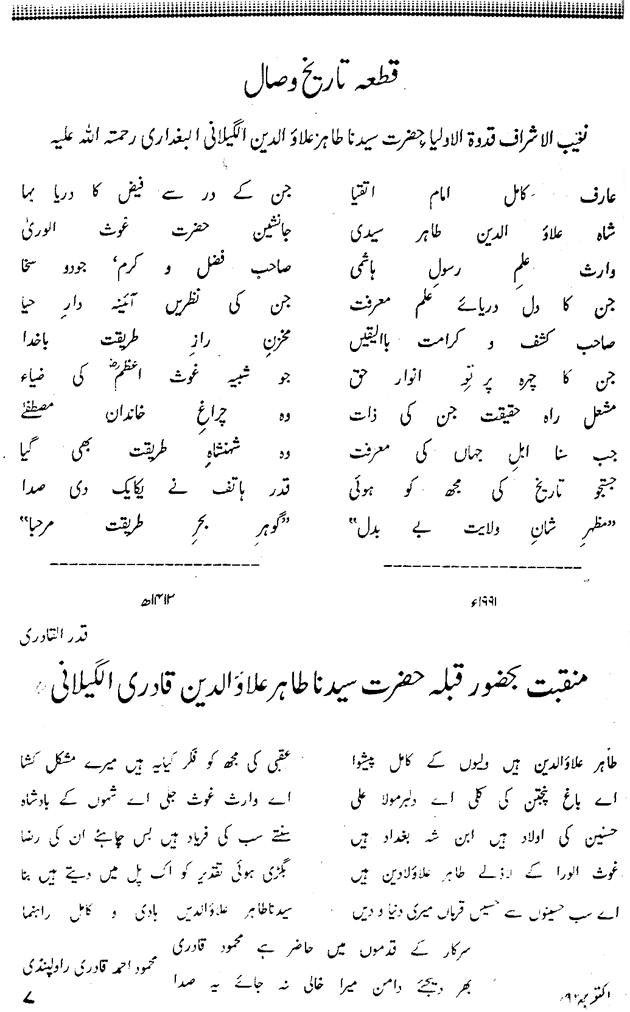 قطعہ تاریخ وصال
نقیب الاشراف قدوۃ الاولیا حضرت سیدنا طاہر علاؤ الدین الگیلانی البغدادی رحمتہ اللہ علیہ
عارف کامل امام اتقیا جن کے در سے فیض کا دریا بہا
شاہ علاؤ الدین طاہر سیدی جانشین حضرت غوث الوریٰ
وارث علمِ رسولِ ہاشمی صاحب فضل و کرم، جودو سخا
جن کا دل دریائے علم معرفت جن کی نظریں آئینہ دارِ حیا
صاحب کشف و کرامت باالیقیں مخزنِ رازِ طریقت باخدا
جن کا چہرہ پرتوِ انوار حق جو شبیہ غوث اعظمؓ کی ضیاء
مشعل راہ حقیقت جن کی ذات وہ چراغِ خاندان مصطفےٰ
جب سنا اہلِ جہاں کی معرفت وہ شہنشاہِ طریقت بھی گیا
جستجو تاریخ کی مجھ کو ہوئی قدر ہاتف نے یکایک دی صدا
"مظہرِ شانِ ولایت بے بدل" "گوہرِ بحرِ طریقت مرحبا"
۱۹۹۱ء ۱۴۱۲ھ
قدر القادری
منقبت بحضور قبلہ حضرت سیدنا طاہر علاؤالدین قادری الگیلانی
طاہر علاؤالدین ہیں ولیوں کے کامل پیشوا عقبیٰ کی مجھ کو فکر کیا یہ ہیں میرے مشکل کشا
اے باغِ پنجتن کی کلی اے دلبرمولا علی اے وارث غوث جلی اے شہوں کے بادشاہ
حسنین کی اولاد ہیں ابن شہ بغداد ہیں سنتے سب کی فریاد ہیں بس چاہئے ان کی رضا
غوث الورا کے لاڈلے طاہر علاؤالادین ہیں بگڑی ہوئی تقدیر کو اک پل میں دیتے ہیں بنا
اے سب حسینوں سے حسیں قرباں میری دنیا و دیں سیدناطاہر علاؤالدیں ہادی و کامل راہنما
سرکار کے قدموں میں حاضر ہے محمود قادری
بھر دیجئے دامن میرا خالی نہ جائے یہ صدا
محمود احمد قادری راولپنڈی
اکتوبر ۹۲ء ۷